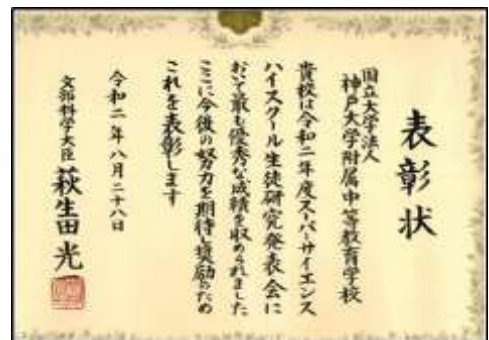 表彰状
国立大学法人
神戸大学附属中等教育学校
貴校は令和二年度スーパーサイエンス
ハイスクール生徒研究発表会に
おいて最も優秀な成績を収められました
ここに今後の努力を期待し奨励のため
これを表彰します
令和二年八月二十八日
文部科学大臣 萩生田光